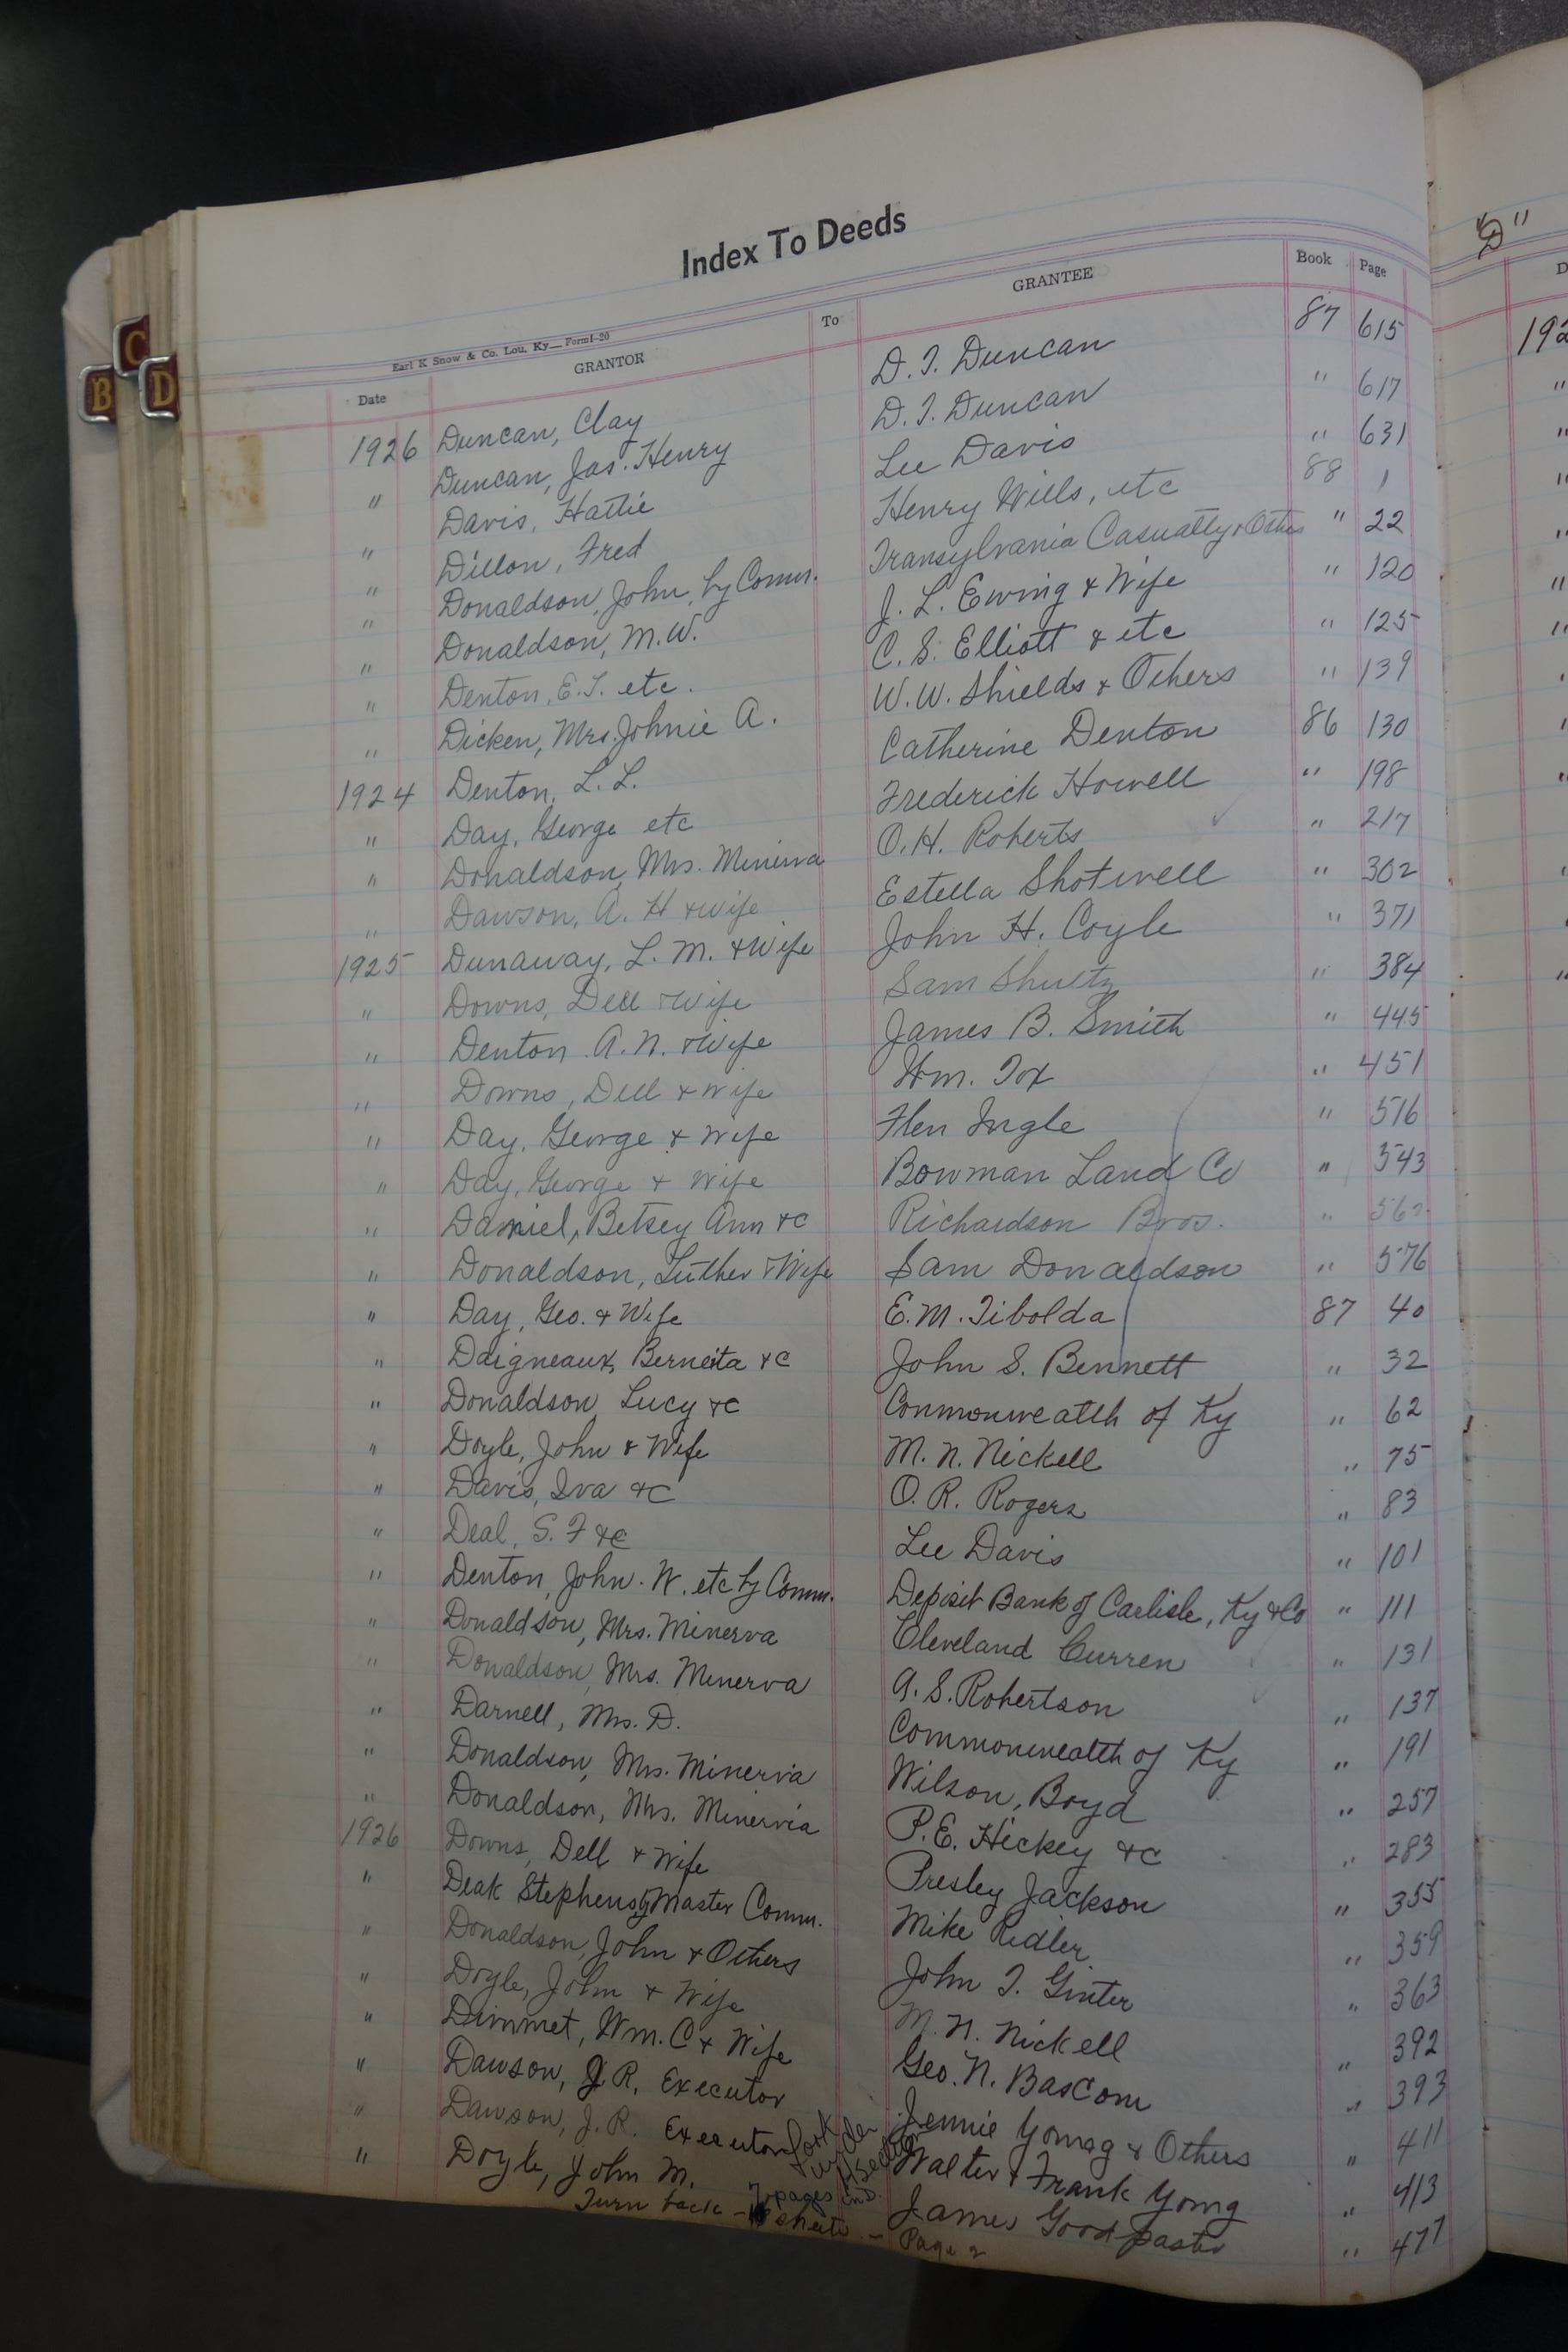 Index To Deeds
Earl K Snow & Co. Lou, Ky— Form I-20
Date GRANTOR To GRANTEE Book Page
1926 Duncan, Clay D. T. Duncan 87 615
" Duncan, Jas. Henry D. T. Duncan " 617
" Davis, Hattie Lee Davis " 631
" Dillon, Fred Henry Wills, etc 88 1
" Donaldson, John, by Comm. Transylvania Casualty & Others " 22
" Donaldson, M. W. J. L. Ewing & Wife " 120
" Denton, E. T. etc. C. S. Elliott & etc " 125
" Dicken, Mrs. Johnie A. W. W. Shields & Others " 139
1924 Denton, L. L. Catherine Denton 86 130
" Day, George etc Frederick Howell " 198
" Donaldson, Mrs. Minerva O. H. Roberts " 217
" Dawson, A. H & wife Estella Shotwell " 302
1925 Dunaway, L. M. & Wife John H. Coyle " 371
" Downs, Dell & Wife Sam Shultz " 384
" Denton A. N. & Wife James B. Smith " 445
" Downs, Dell & wife Wm. Fox " 451
" Day, George & Wife Flen Ingle " 516
" Day, George & Wife Bowman Land Co " 543
" Daniel, Betsey Ann &C Richardson Bros. "
" Donaldson, Luther & Wife Sam Donaldson " 576
" Day, Geo. & Wife E. M. Tibolda 87 40
" Daigneaux, Berneita &C John S. Bennett " 32
" Donaldson Lucy &C Commonwealth of Ky " 62
" Doyle, John & Wife M. N. Nickell " 75
" Davis, Iva &C O. R. Rogers " 83
" Deal, S. F &C Lee Davis " 101
" Denton, John. W. etc by Comm. Deposit Bank of Carlisle, Ky &Co " 111
" Donaldson, Mrs. Minerva Cleveland Curren " 131
" Donaldson, Mrs. Minerva A. S. Robertson " 137
" Darnell, Mrs. D. Commonwealth of Ky " 191
" Donaldson, Mrs. Minervia Wilson, Boyd " 257
" Donaldson, Mrs. Minervia P. E. Hickey &C " 283
1926 Downs, Dell & Wife Presley Jackson " 355
" Deak Stephens by Master Comm. Mike Ridler " 359
" Donaldson, John & Others John T. Ginter " 363
" Doyle, John & Wife M. N. Nickell " 392
" Dimmet, Wm. C & Wife Geo. N. Bascom " 393
" Dawson, J. R. Executor Jennie Young & Others " 411
" Dawson, J. R. Executor Walter & Frank Young " 413
" Doyle, John M. James Goodpaster " 477
look under
7 pages in D.
Turn back - sheets - Page 2
"D"
192